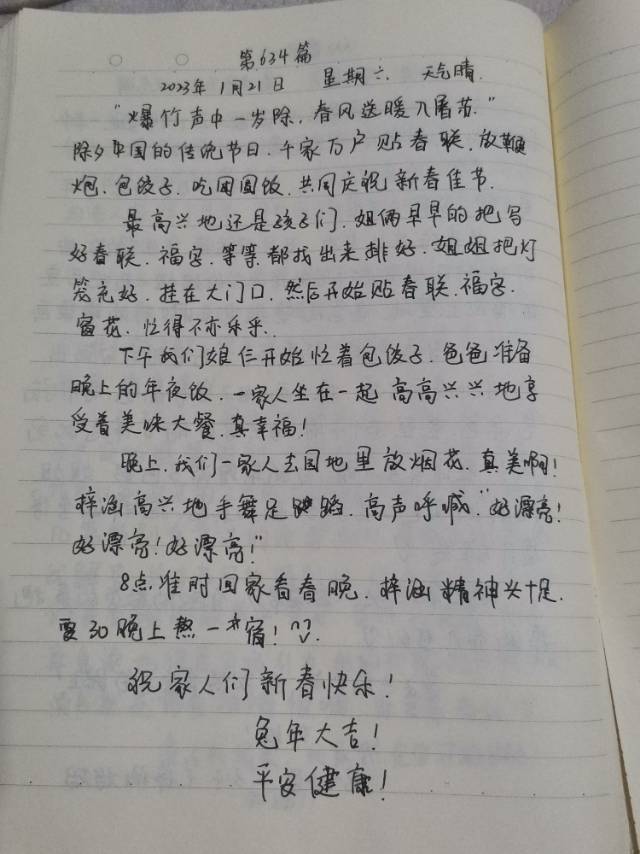 第634篇
2023年1月21日 星期六 天气晴.
"爆竹声中一岁除,春风送暖入屠苏."
除夕中国的传统节日.千家万户贴春联.放鞭
炮.包饺子.吃团圆饭.共同庆祝新春佳节.
最高兴地还是孩子们.姐俩早早的把写
好春联.福字.等等都找出来排好.姐姐把灯
笼充好.挂在大门口.然后开始贴春联.福字.
窗花.忙得不亦乐乎.
下午我们娘仨开始忙着包饺子.爸爸准备
晚上的年夜饭.一家人坐在一起高高兴兴地享
受着美味大餐.真幸福!
晚上.我们一家人去园地里放烟花.真美啊!
梓涵高兴地手舞足蹈.高声呼喊."好漂亮!
好漂亮!好漂亮!"
8点准时回家看春晚.梓涵精神头十足.
要30晚上熬一宿!
祝家人们新春快乐!
兔年大吉!
平安健康!